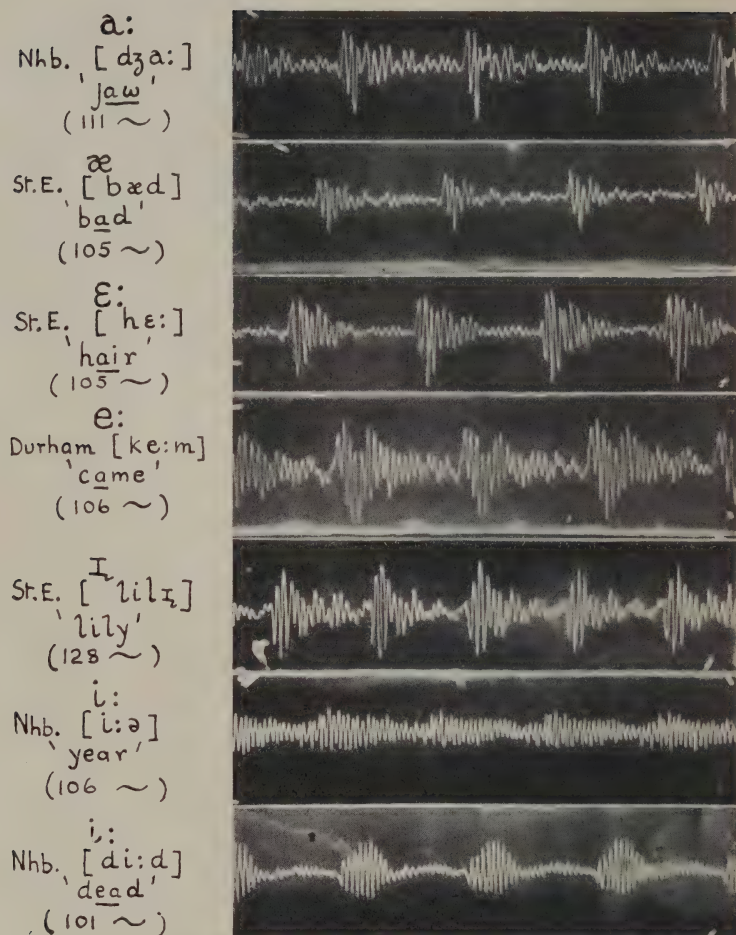 a:
Nhb. [dʒa:]
'jaw'
(111 ~)
æ
St.E. [bæd]
'bad'
(105 ~)
ɛ:
St.E. [hɛ:]
'hair'
(105 ~)
e:
Durham [ke:m]
'came'
(106 ~)
ɪ̨
St.E. [lilɪ̨]
'lily'
(128 ~)
i:
Nhb. [i:ə]
'year'
(106 ~)
i̜:
Nhb. [di:d]
'dead'
(101 ~)